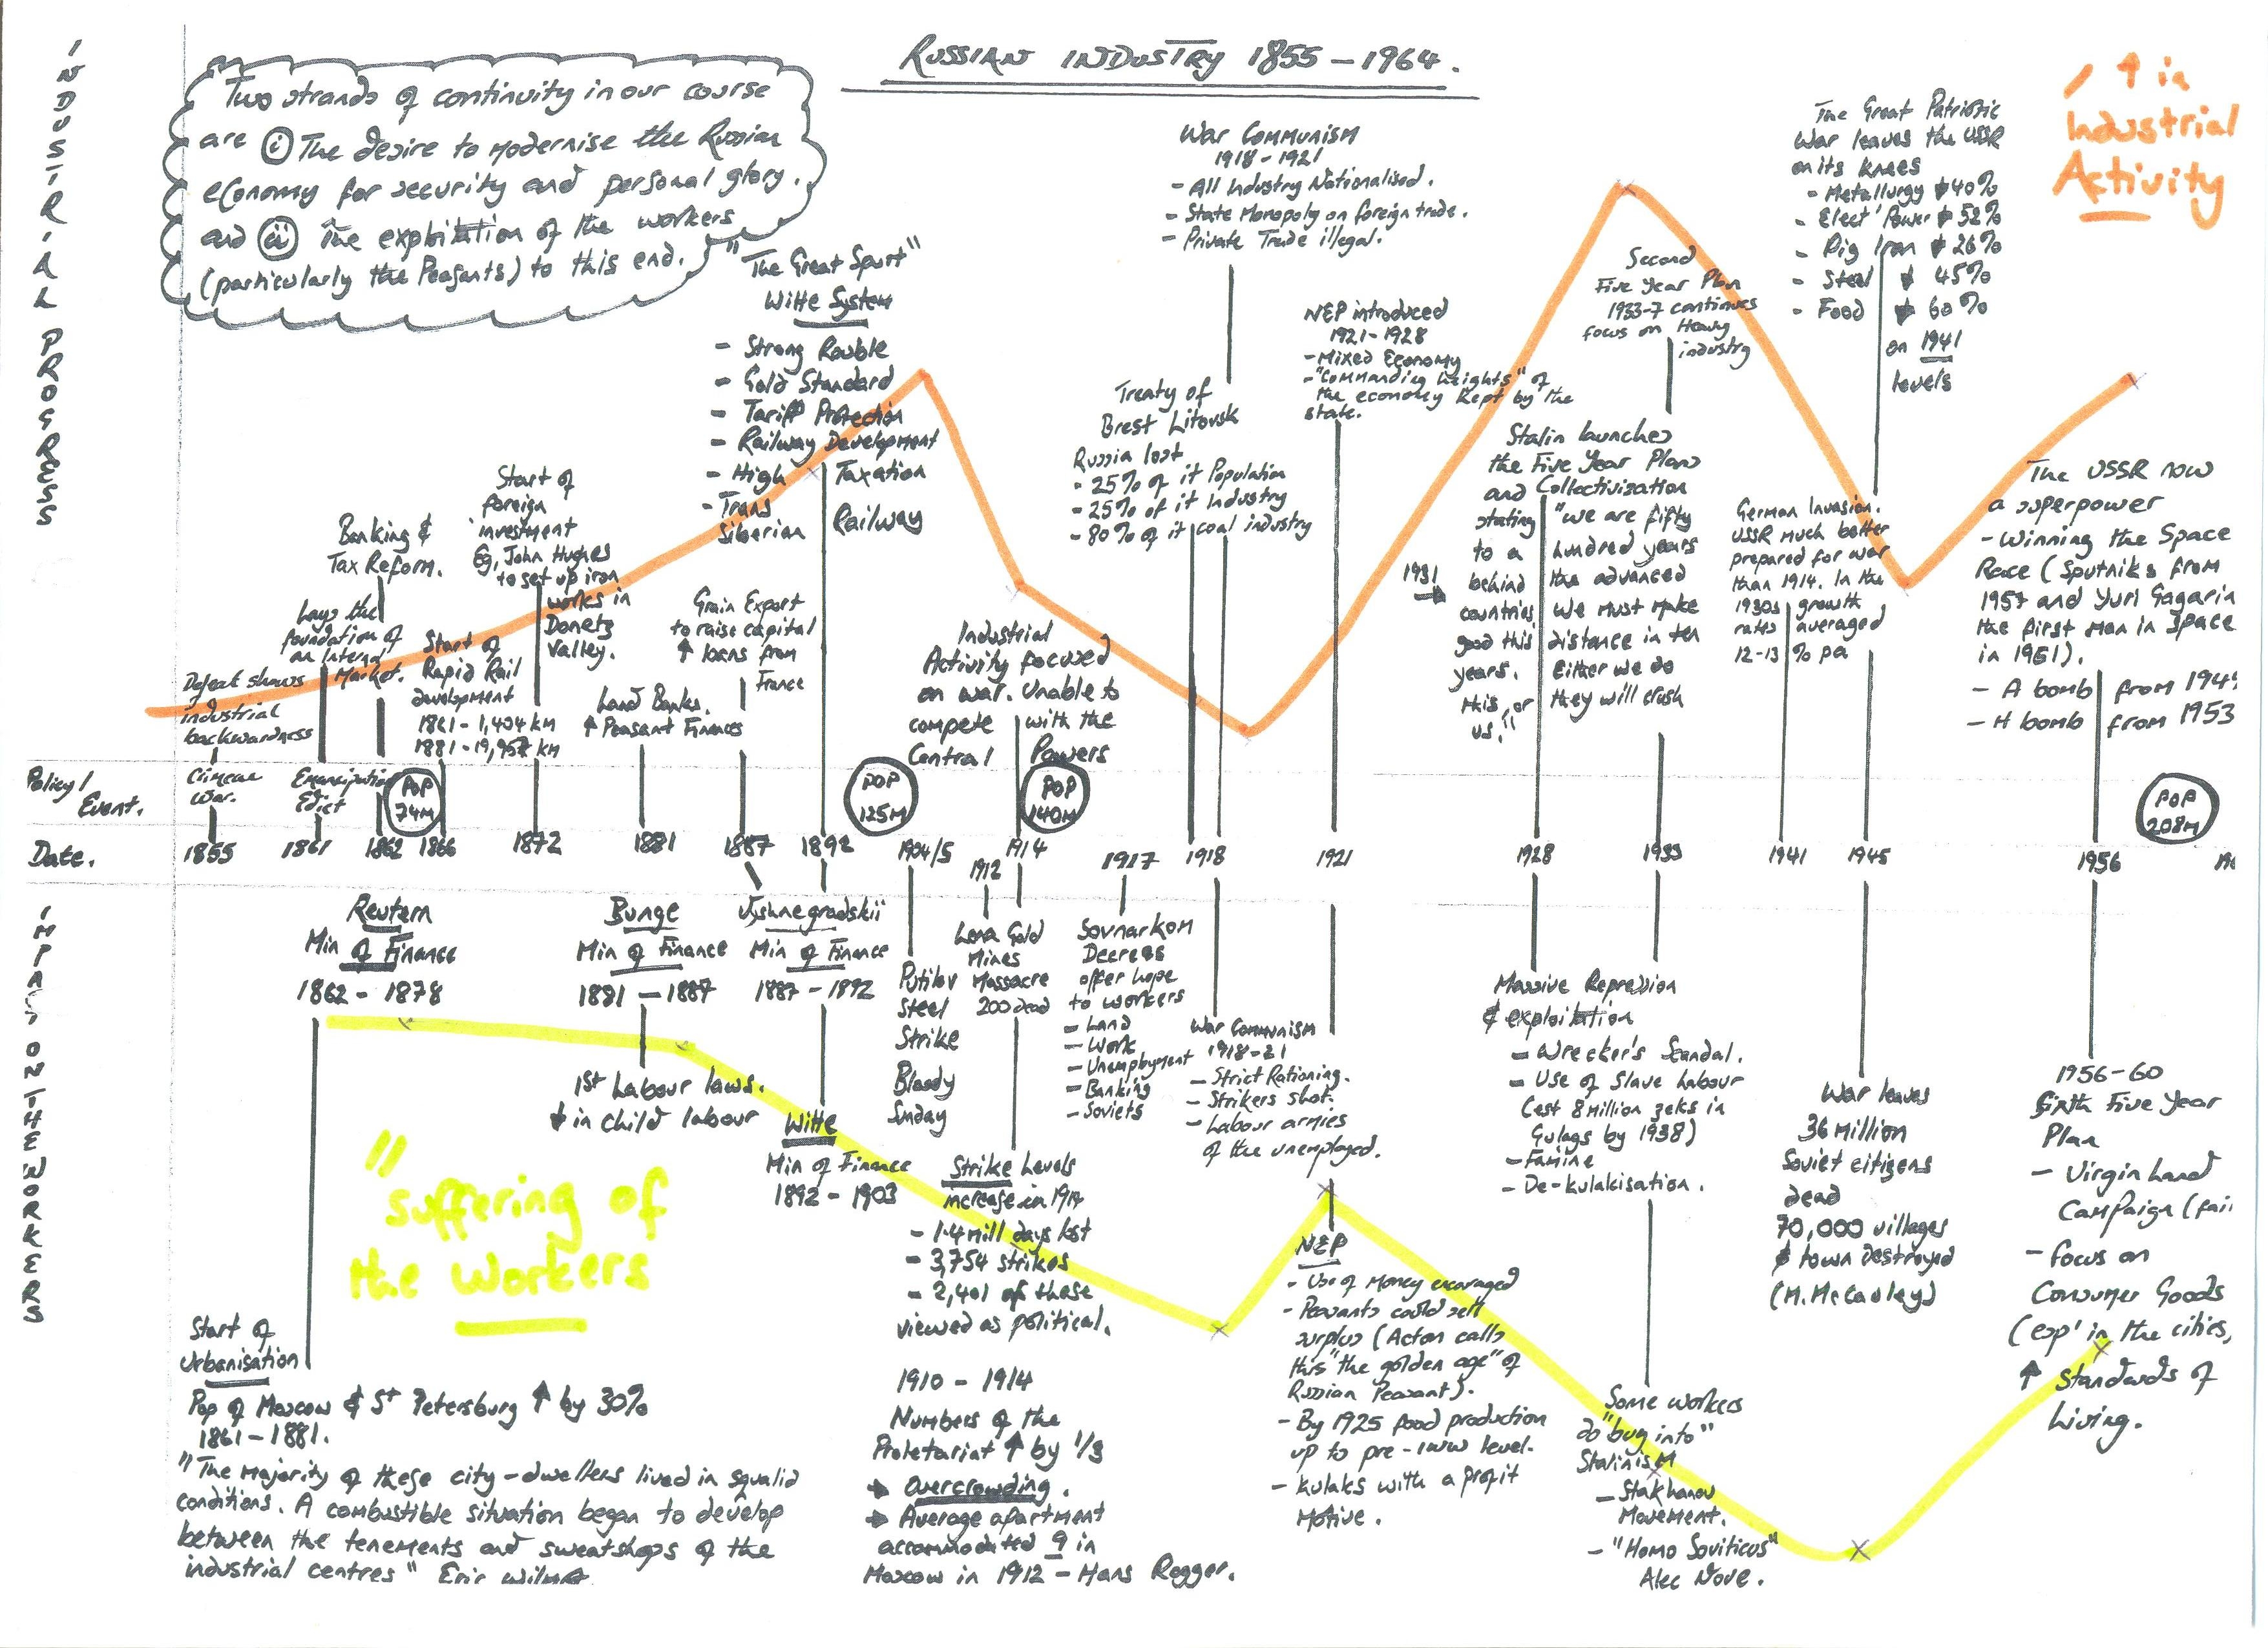 RUSSIAN INDUSTRY 1855-1964.
INDUSTRIAL PROGRESS
Two strands of continuity in our course
are (i) The desire to modernise the Russian
economy for security and personal glory.
and (ii) The exploitation of the workers
(particularly the Peasants) to this end.
↑ in
Industrial
Activity
Defeat shows
industrial
backwardness
Lays the
foundation of
an Internal
Market.
Banking &
Tax Reform.
Start of
Rapid Rail
development
1861-1,404 km
1881-19,957 km
Start of
foreign
investment
Eg, John Hughes
to set up iron
works in
Donetz
Valley.
Land Banks.
↑ Peasant Finances
Grain Export
to raise capital
↑ loans from
France
"The Great Spurt"
Witte System
- Strong Rouble
- Gold Standard
- Tariff Protection
- Railway Development
- High Taxation
- Trans
Siberian Railway
Industrial
Activity focused
on war. Unable to
compete with the
Central Powers
Treaty of
Brest Litovsk
Russia lost
- 25% of it Population
- 25% of it Industry
- 80% of it coal industry
War Communism
1918-1921
- All Industry Nationalised.
- State Monopoly on foreign trade.
- Private Trade illegal.
NEP introduced
1921-1928
- Mixed Economy
- "Commanding heights" of
the economy kept by the
state.
Stalin launches
the Five Year Plans
and Collectivization
1931 →
stating "we are fifty
to a hundred years
behind the advanced
countries. We must make
good this distance in ten
years. Either we do
this, or they will crush
us."
Second
Five Year Plan
1933-7 continues
focus on Heavy
industry
German Invasion.
USSR much better
prepared for war
than 1914. In the
1930s growth
rates averaged
12-13 % pa
The Great Patriotic
War leaves the USSR
on its knees
- Metallurgy ↓ 40%
- Elect' Power ↓ 52%
- Pig Iron ↓ 26%
- Steel ↓ 45%
- Food ↓ 60%
on 1941
levels
The USSR now
a superpower
- Winning the Space
Race (Sputniks from
1957 and Yuri Gagarin
the first man in Space
in 1961).
- A bomb from 1949
- H bomb from 1953
Policy/
Event.
Crimean
War.
Emancipation
Edict
POP
74M
POP
125M
POP
140M
POP
208M
Date.
1855 1861 1862 1866 1872 1881 1887 1892 1904/5 1912 1914 1917 1918 1921 1928 1933 1941 1945 1956
IMPACT ON THE WORKERS
Reutern
Min of Finance
1862-1878
Bunge
Min of Finance
1881-1887
1st Labour laws.
↓ in child labour
Vyshnegradskii
Min of Finance
1887-1892
Witte
Min of Finance
1892-1903
Putilov
Steel
Strike
Bloody
Sunday
Lena Gold
Mines
Massacre
200 dead
Sovnarkom
Decrees
offer hope
to workers
- Land
- Work
- Unemployment
- Banking
- Soviets
War Communism
1918-21
- Strict Rationing.
- Strikers shot.
- Labour armies
of the unemployed.
Massive Repression
& exploitation
- Wrecker's Scandal.
- Use of Slave Labour
(est 8 million zeks in
Gulags by 1938)
- Famine
- De-kulakisation.
War leaves
36 Million
Soviet citizens
dead
70,000 villages
& town destroyed
(M. McCauley)
1956-60
Sixth Five Year
Plan
- Virgin Land
Campaign (fail
- focus on
Consumer Goods
(esp' in the cities,
↑ Standards of
living.
"Suffering of
the Workers
Start of
Urbanisation
Pop of Moscow & St Petersburg ↑ by 30%
1861-1881.
"The majority of these city-dwellers lived in squalid
conditions. A combustible situation began to develop
between the tenements and sweatshops of the
industrial centres" Eric
Strike Levels
increase in 1914
- 1.4 mill days lost
- 3,754 strikes
- 2,401 of these
viewed as political.
1910-1914
Numbers of the
Proletariat ↑ by 1/3
→ Overcrowding.
→ Average apartment
accommodated 9 in
Moscow in 1912 - Hans Rogger.
NEP
- Use of Money encouraged
- Peasants could sell
surplus (Acton calls
this "the golden age" of
Russian Peasant).
- By 1925 food production
up to pre-1WW level.
- Kulaks with a profit
Motive.
Some workers
do "buy into"
Stalinism
- Stakhanov
Movement.
- "Homo Soviticus"
Alec Nove.